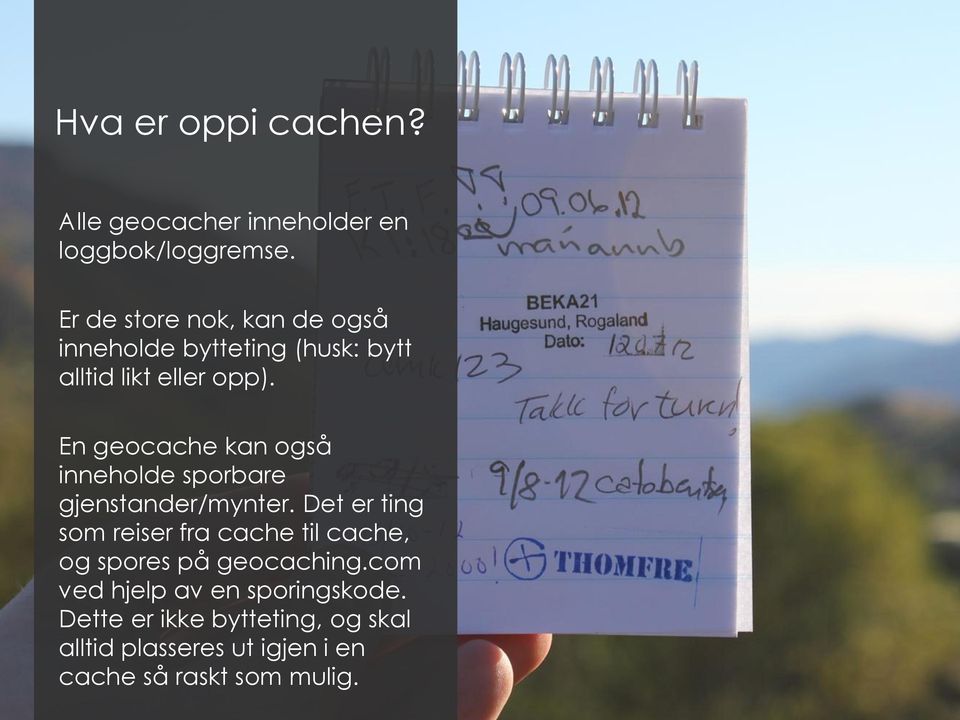 Hva er oppi cachen?
Alle geocacher inneholder en
loggbok/loggremse.
Er de store nok, kan de også
inneholde bytteting (husk: bytt
alltid likt eller opp).
En geocache kan også
inneholde sporbare
gjenstander/mynter. Det er ting
som reiser fra cache til cache,
og spores på geocaching.com
ved hjelp av en sporingskode.
Dette er ikke bytteting, og skal
alltid plasseres ut igjen i en
cache så raskt som mulig.
F.T.F. 09.06.12
BEKA21
Haugesund, Rogaland
Dato:
123
Takk for turen!
9/8-12
THOMFRE